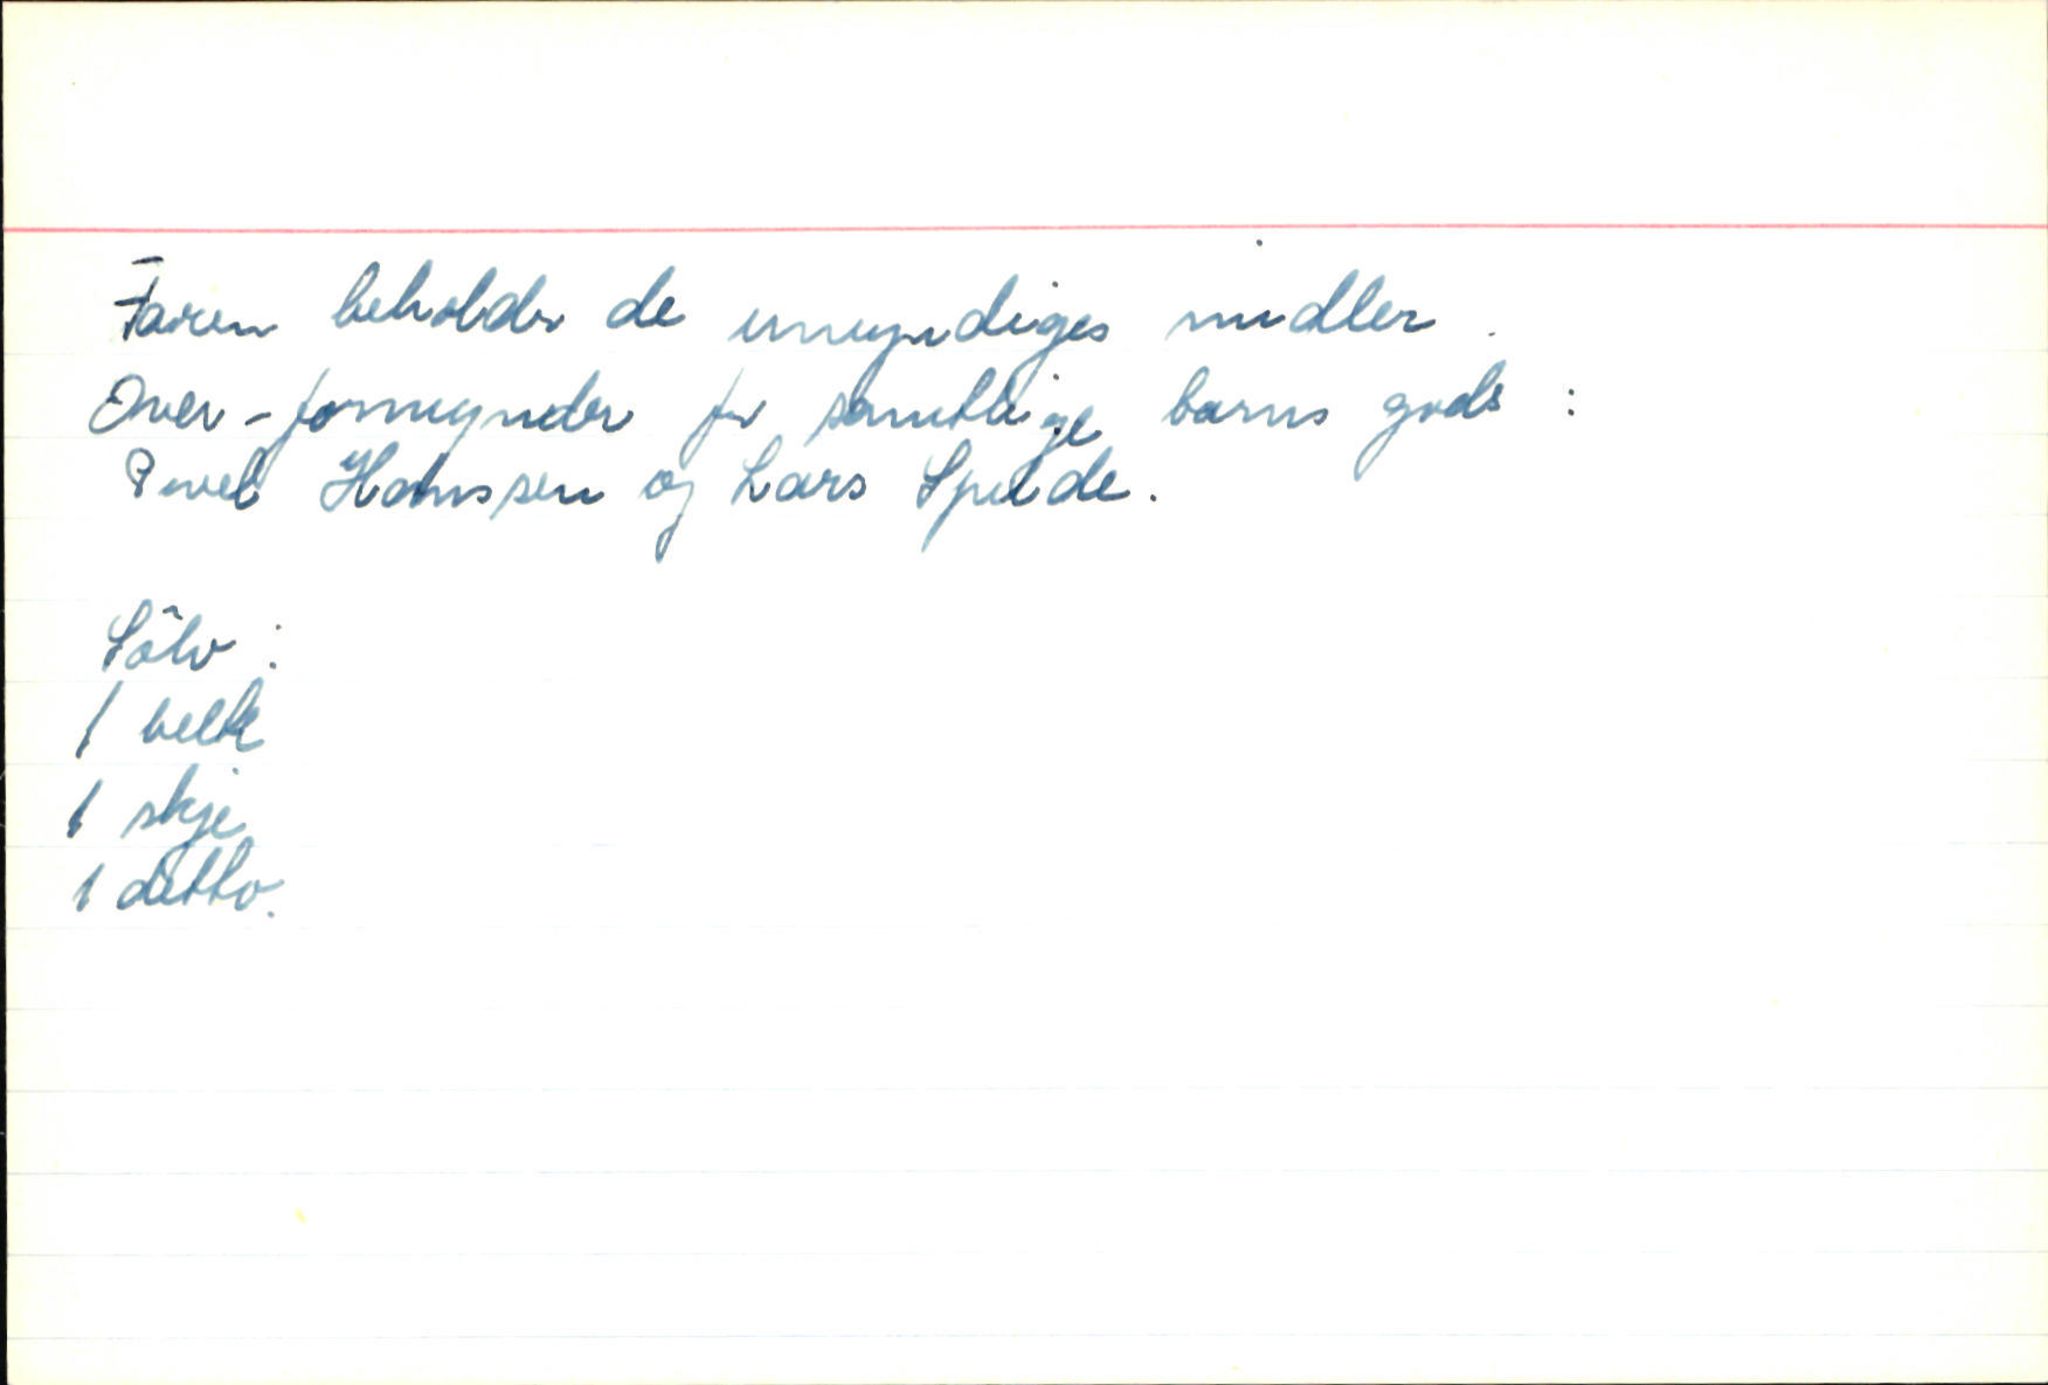 Faren beholder de umyndiges midler.
Over-formynder for samtlige barns gods :
Povel Hanssen og Lars Spilde.
Sölv :
1 belte
1 skje
1 detto.